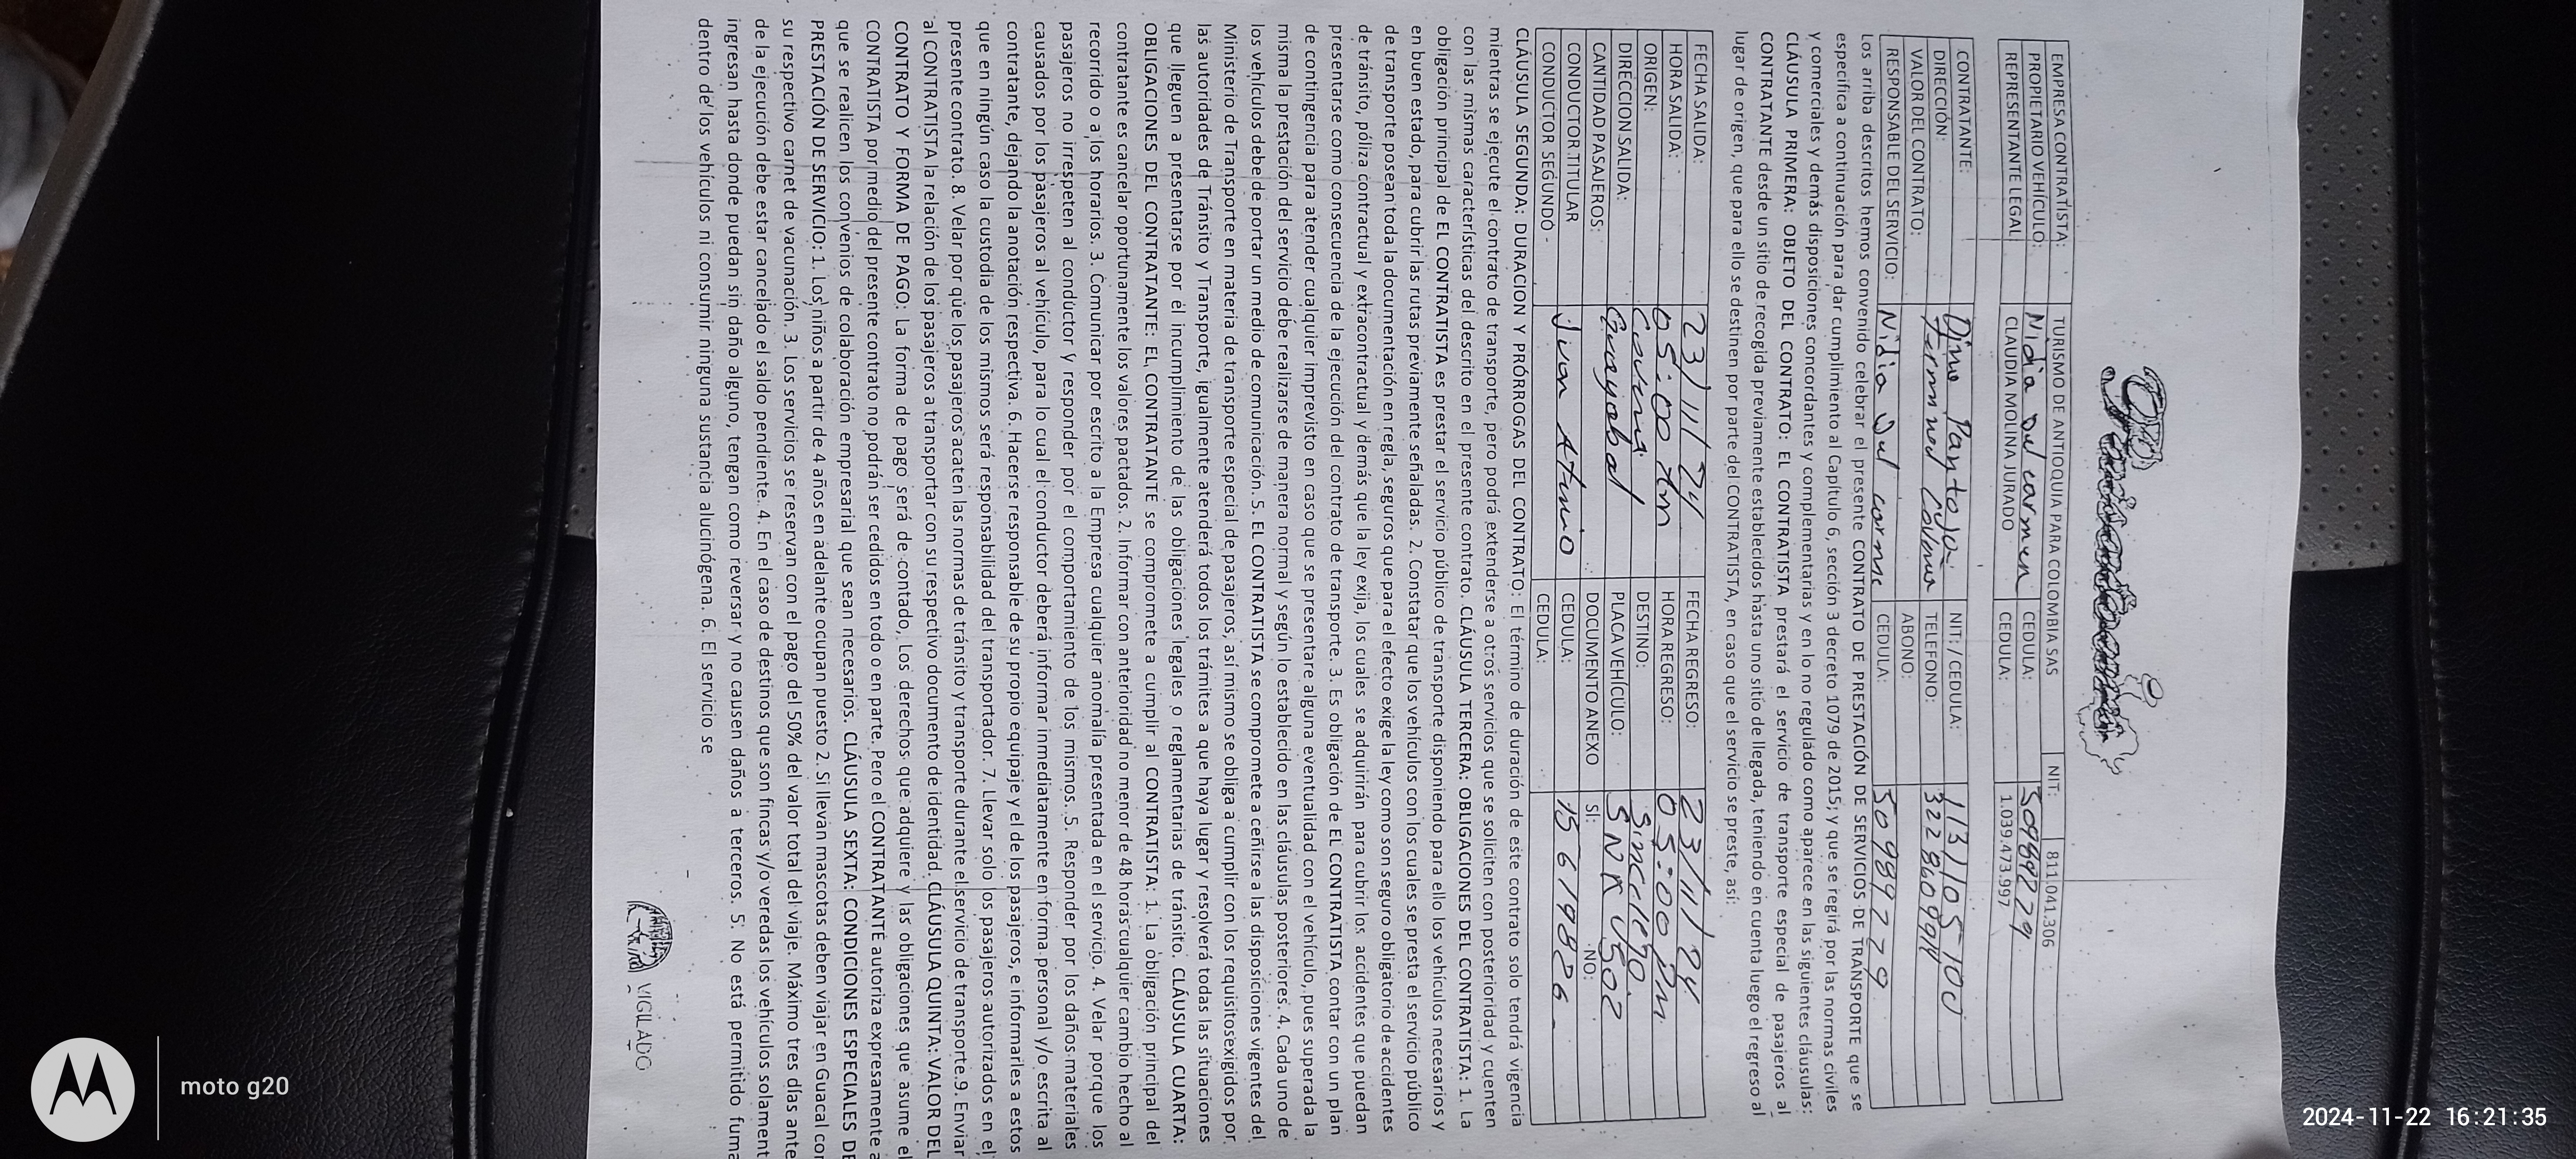 EMPRESA CONTRATISTA: TURISMO DE ANTIOQUIA PARA COLOMBIA SAS NIT: 811.041.306
PROPIETARIO VEHÍCULO: Nidia del carmen CEDULA: 50989229
REPRESENTANTE LEGAL CLAUDIA MOLINA JURADO CEDULA: 1.039.473.997
CONTRATANTE: Dino Pantoja NIT: / CEDULA: 113/105-100
DIRECCIÓN: TELEFONO: 3228609911
VALOR DEL CONTRATO: ABONO:
RESPONSABLE DEL SERVICIO: Nidia del carme CEDULA: 50989229
Los arriba descritos hemos convenido celebrar el presente CONTRATO DE PRESTACIÓN DE SERVICIOS DE TRANSPORTE que se
especifica a continuación para dar cumplimiento al Capítulo 6, sección 3 decreto 1079 de 2015; y que se regirá por las normas civiles
y comerciales y demás disposiciones concordantes y complementarias y en lo no regulado como aparece en las siguientes cláusulas:
CLÁUSULA PRIMERA: OBJETO DEL CONTRATO: EL CONTRATISTA prestará el servicio de transporte especial de pasajeros al
CONTRATANTE desde un sitio de recogida previamente establecidos hasta uno sitio de llegada, teniendo en cuenta luego el regreso al
lugar de origen, que para ello se destinen por parte del CONTRATISTA, en caso que el servicio se preste, así:
FECHA SALIDA: 23/11/24 FECHA REGRESO: 23/11/24
HORA SALIDA: 05:00 Am HORA REGRESO: 05:00 Pm
ORIGEN: DESTINO: Sincelejo.
DIRECCION SALIDA: Guayabal PLACA VEHÍCULO: SNR 502
CANTIDAD PASAJEROS: DOCUMENTO ANEXO SI: NO:
CONDUCTOR TITULAR CEDULA: 15619826
CONDUCTOR SEGUNDO CEDULA:
CLÁUSULA SEGUNDA: DURACION Y PRÓRROGAS DEL CONTRATO: El término de duración de este contrato solo tendrá vigencia
mientras se ejecute el contrato de transporte, pero podrá extenderse a otros servicios que se soliciten con posterioridad y cuenten
con las mismas características del descrito en el presente contrato. CLÁUSULA TERCERA: OBLIGACIONES DEL CONTRATISTA: 1. La
obligación principal de EL CONTRATISTA es prestar el servicio público de transporte disponiendo para ello los vehículos necesarios y
en buen estado, para cubrir las rutas previamente señaladas. 2. Constatar que los vehículos con los cuales se presta el servicio público
de transporte posean toda la documentación en regla, seguros que para el efecto exige la ley como son seguro obligatorio de accidentes
de tránsito, póliza contractual y extracontractual y demás que la ley exija, los cuales se adquirirán para cubrir los accidentes que puedan
presentarse como consecuencia de la ejecución del contrato de transporte. 3. Es obligación de EL CONTRATISTA contar con un plan
de contingencia para atender cualquier imprevisto en caso que se presentare alguna eventualidad con el vehículo, pues superada la
misma la prestación del servicio debe realizarse de manera normal y según lo establecido en las cláusulas posteriores. 4. Cada uno de
los vehículos debe de portar un medio de comunicación. 5. EL CONTRATISTA se compromete a ceñirse a las disposiciones vigentes del
Ministerio de Transporte en materia de transporte especial de pasajeros, así mismo se obliga a cumplir con los requisitos exigidos por
las autoridades de Tránsito y Transporte, igualmente atenderá todos los trámites a que haya lugar y resolverá todas las situaciones
que lleguen a presentarse por el incumplimiento de las obligaciones legales o reglamentarias de tránsito. CLÁUSULA CUARTA:
OBLIGACIONES DEL CONTRATANTE: EL CONTRATANTE se compromete a cumplir al CONTRATISTA: 1. La obligación principal del
contratante es cancelar oportunamente los valores pactados. 2. Informar con anterioridad no menor de 48 horas cualquier cambio hecho al
recorrido o a los horarios. 3. Comunicar por escrito a la Empresa cualquier anomalía presentada en el servicio. 4. Velar porque los
pasajeros no irrespeten al conductor y responder por el comportamiento de los mismos. 5. Responder por los daños materiales
causados por los pasajeros al vehículo, para lo cual el conductor deberá informar inmediatamente en forma personal y/o escrita al
contratante, dejando la anotación respectiva. 6. Hacerse responsable de su propio equipaje y el de los pasajeros, e informarles a estos
que en ningún caso la custodia de los mismos será responsabilidad del transportador. 7. Llevar solo los pasajeros autorizados en el
presente contrato. 8. Velar por que los pasajeros acaten las normas de tránsito y transporte durante el servicio de transporte. 9. Enviar
al CONTRATISTA la relación de los pasajeros a transportar con su respectivo documento de identidad. CLÁUSULA QUINTA: VALOR DEL
CONTRATO Y FORMA DE PAGO: La forma de pago será de contado, Los derechos que adquiere y las obligaciones que asume el
CONTRATISTA por medio del presente contrato no podrán ser cedidos en todo o en parte. Pero el CONTRATANTE autoriza expresamente a
que se realicen los convenios de colaboración empresarial que sean necesarios. CLÁUSULA SEXTA: CONDICIONES ESPECIALES DE
PRESTACIÓN DE SERVICIO: 1. Los niños a partir de 4 años en adelante ocupan puesto 2. Si llevan mascotas deben viajar en Guacal con
su respectivo carnet de vacunación. 3. Los servicios se reservan con el pago del 50% del valor total del viaje. Máximo tres días ante
de la ejecución debe estar cancelado el saldo pendiente. 4. En el caso de destinos que son fincas y/o veredas los vehículos solament
ingresan hasta donde puedan sin daño alguno, tengan como reversar y no causen daños a terceros. 5. No está permitido fuma
dentro de los vehículos ni consumir ninguna sustancia alucinógena. 6. El servicio se
VIGILADO
moto g20
2024-11-22 16:21:35